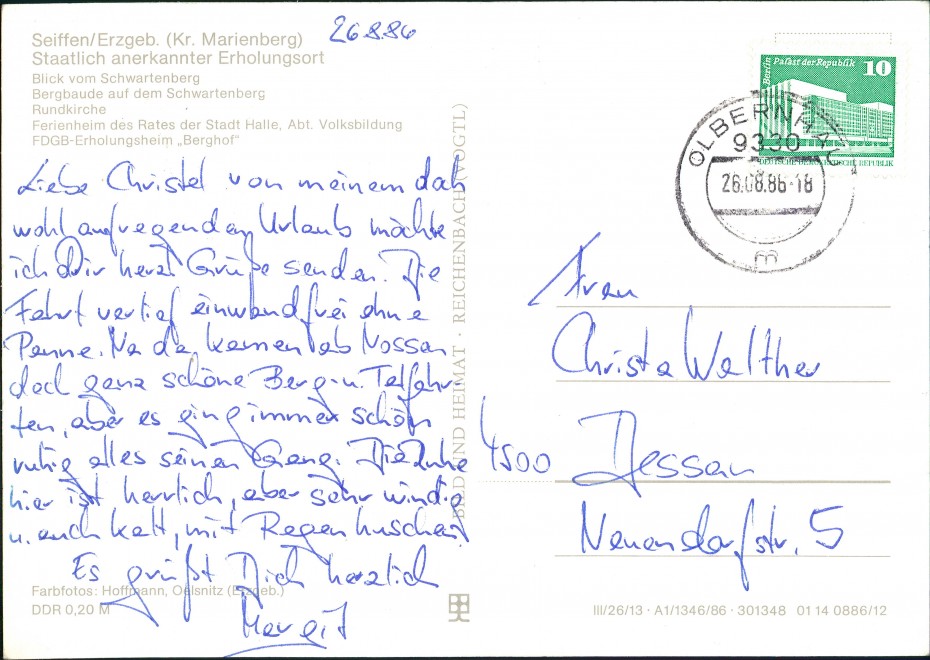 26.8.86
Seiffen/Erzgeb. (Kr. Marienberg)
Staatlich anerkannter Erholungsort
Blick vom Schwartenberg
Bergbaude auf dem Schwartenberg
Rundkirche
Ferienheim des Rates der Stadt Halle, Abt. Volksbildung
FDGB-Erholungsheim „Berghof"
Liebe Christel von meinem doch
wohl aufregenden Urlaub möchte
ich Dir herzl. Grüße senden. Die
Fahrt verlief einwandfrei ohne
Panne. Na da kamen ab Nossen
doch ganz schöne Berg- u. Talfahr
ten, aber es ging immer schön
ruhig alles seinen Gang. Die Ruhe
hier ist herrlich, aber sehr windig
u. auch kalt, mit Regenhuschen
Es grüßt Dich herzlich
Margit
Farbfotos: Hoffmann, Oelsnitz (Erzgeb.)
DDR 0,20 M
BILD UND HEIMAT · REICHENBACH (VOGTL)
Berlin Palast der Republik 10
DEUTSCHE DEMOKRATISCHE REPUBLIK
OLBERNHAU
9330
26.08.86-18
m
Frau
Christa Walther
4500 Dessau
Neuendorfstr. 5
III/26/13 · A1/1346/86 · 301348 01 14 0886/12